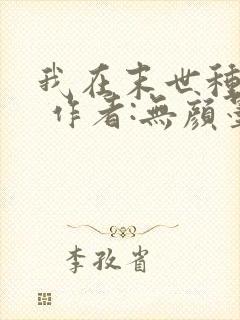 我在末世種
作者:無顏
李孜省